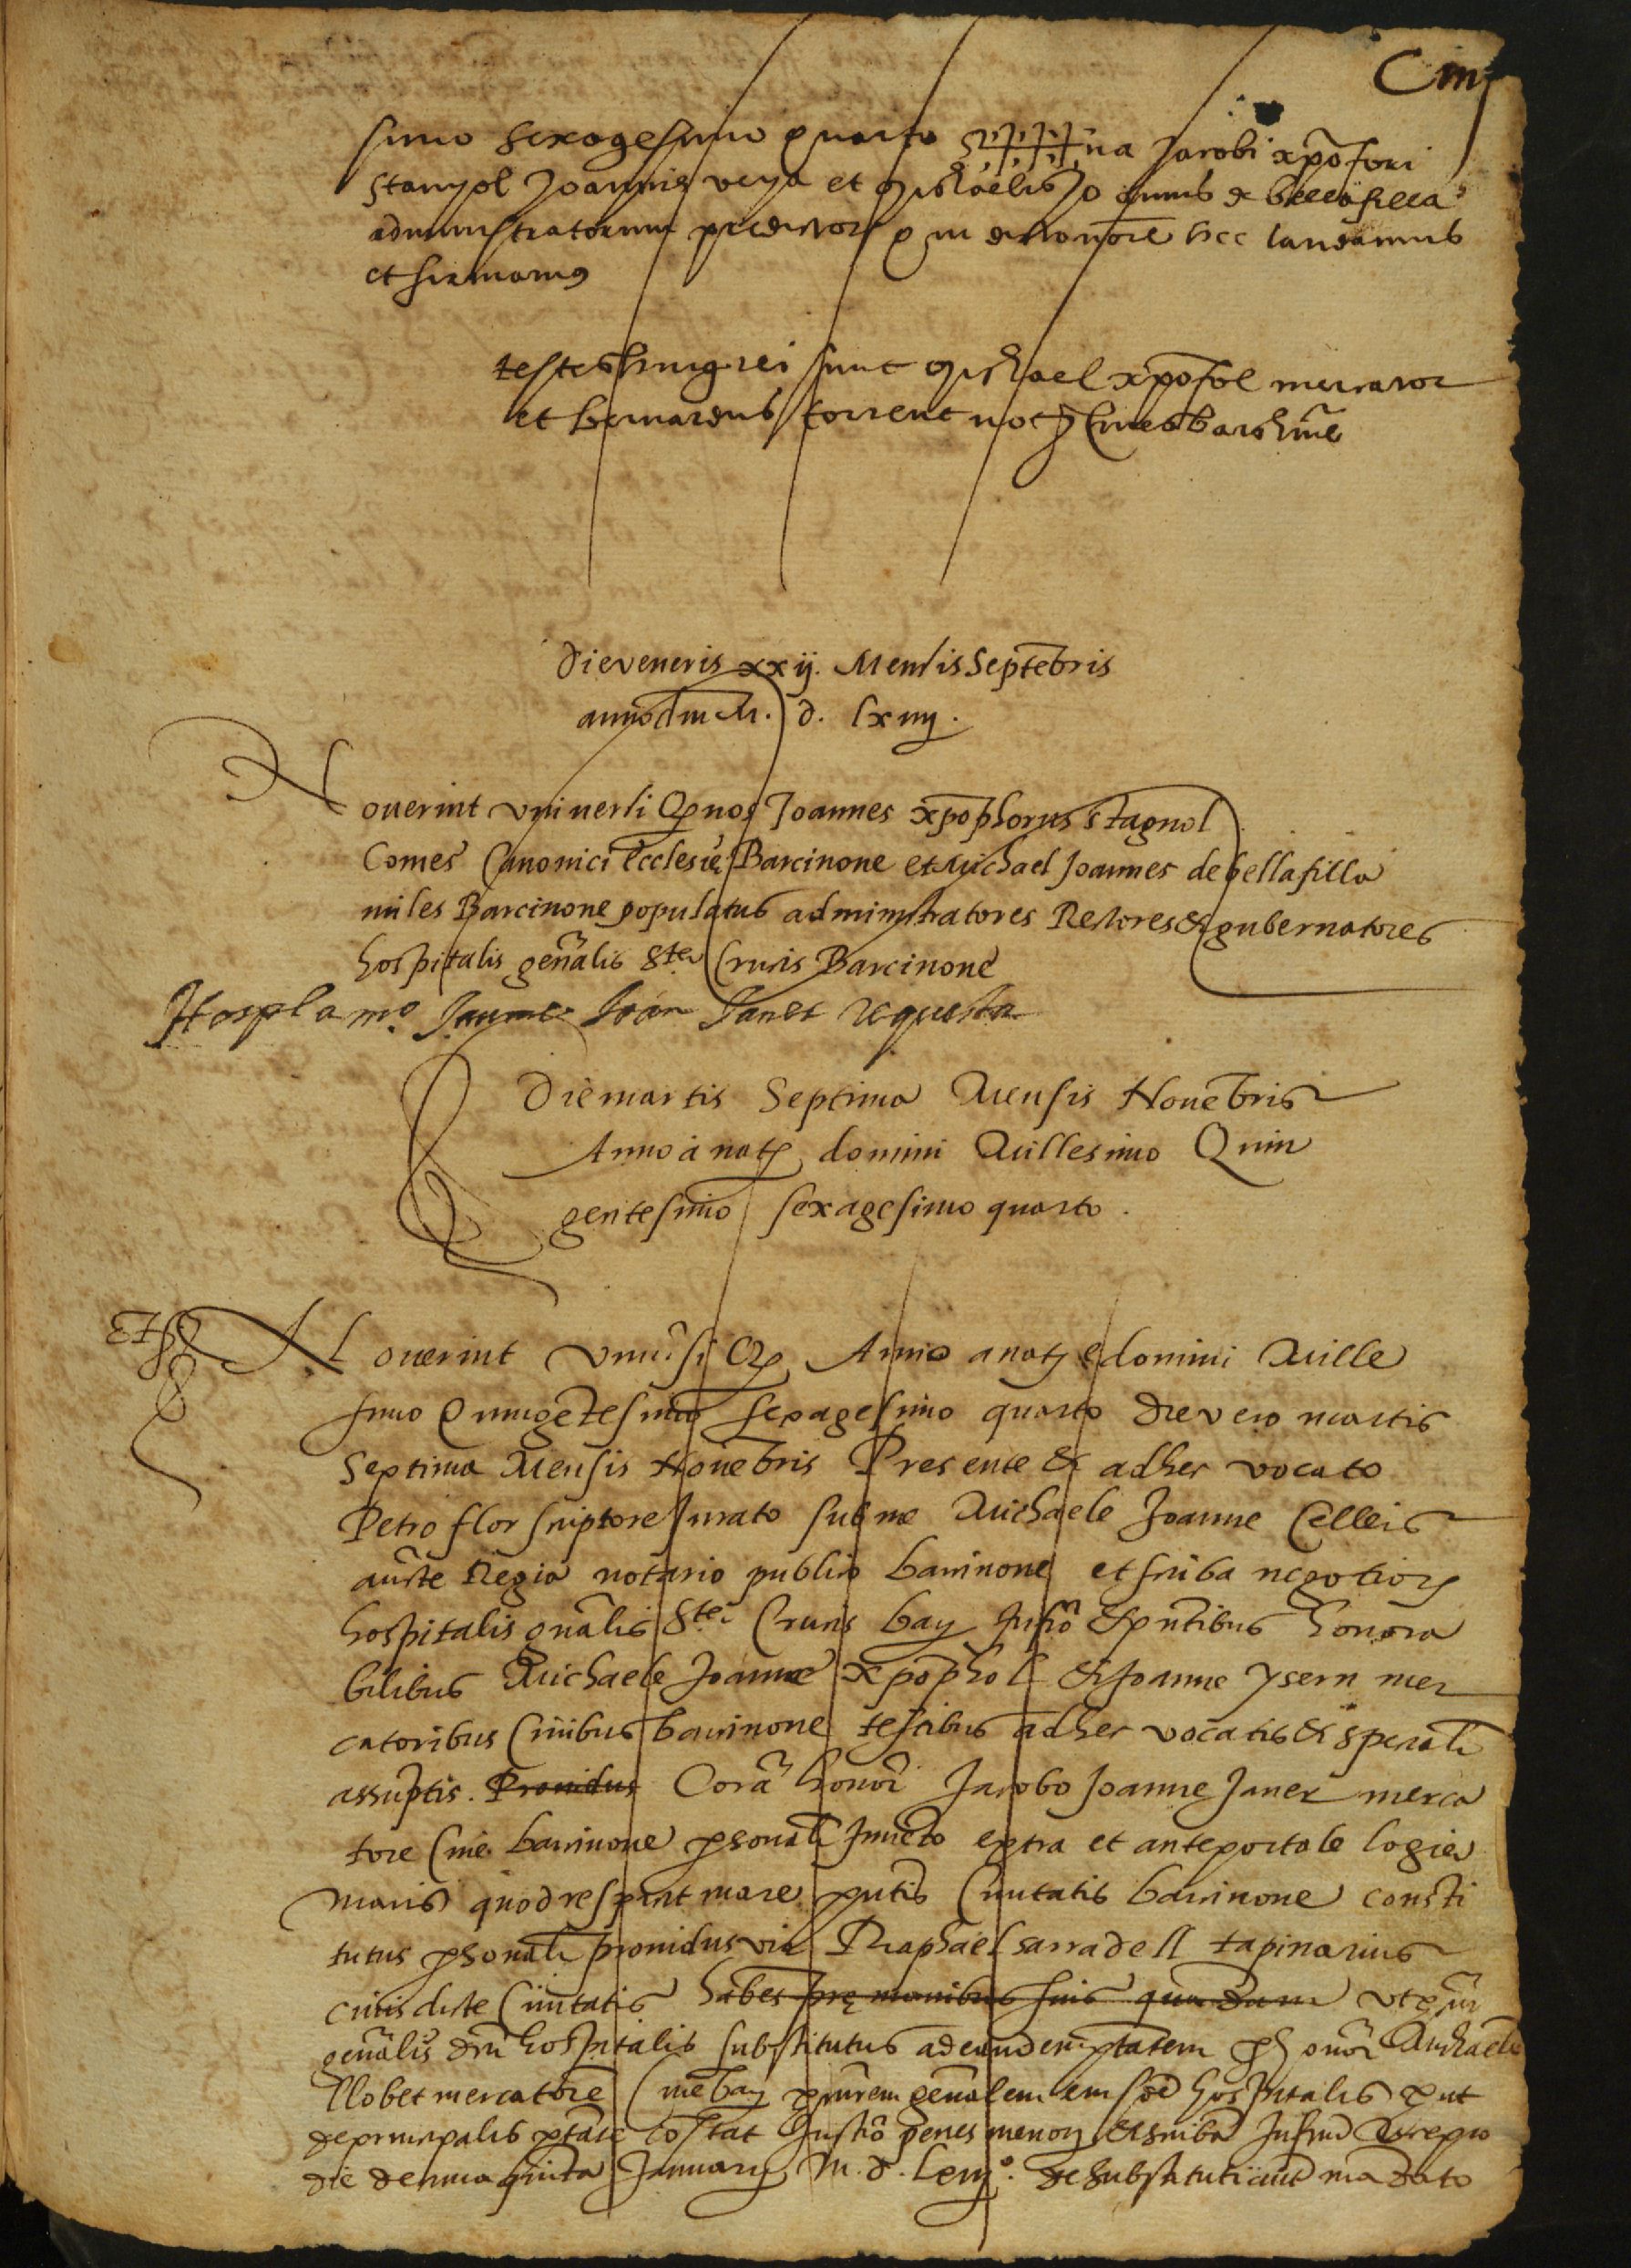 Ciiij
simo sexagesimo quarto na Jacobi xpõfori
Stanyol Joannis veya et michaelis Joannis de bellafilla
administratorum predictor hec laudamus
et firmamus
testes huius rei sunt michael xpõfol mercator
et bernardus torrent not Cives barchine
Die veneris xxij. Mensis Septẽbris
anno dni M. d. lxiiij.
Noverint universi q nos Joannes xpõphorus Stagnol
Comes Canonici Ecclesie Barcinone et Michael Joannes de bellafilla
miles Barcinone populatus administratores Rectores & gubernatores
hospitalis genãlis Ste Crucis Barcinone
Hospl a mº Jaume Joan Janer requesta
Die martis Septima Mensis Novẽbris
Anno a nat domini Millesimo Quin
gentesimo sexagesimo quarto.
Noverint univsi q Anno a nat domini Mille
simo Quingẽtesimo sexagesimo quarto die vero martis
Septima Mensis Novẽbris Presente & ad hec vocato
Petro flor scriptore Jurato sub me Michaele Joanne Celleis
aucte Regia notario publico barcinone et scriba negotior
hospitalis gnãlis Ste Crucis bar Infro & pntibus honora
bilibus Michaele Joanne xpõphol & Joanne ysern mer
catoribus Civibus barcinone testibus ad hec vocatis & speciali
assuptis. Providus Corã honor Jacobo Joanne Janer merca
tore Cive barcinone psonali Invẽto extra et ante portale logie
maris quod respicit mare pntis Civitatis barcinone consti
tutus psonali providus vir Raphael sarradell tapinarius
civis dicte Civitatis habes pre manibus suis quãdam ut
genãlis dicti hospitalis substitutus ad eundem p honor Michaelem
llobet mercatorem Civem bar genãlem eiusdem hospitalis put
de principalis ptãte cõstat Instrõ penes me not & scriba Infrum recepto
die decima quinta Januarij M. d. lxiijº. de substituti aut mãdato